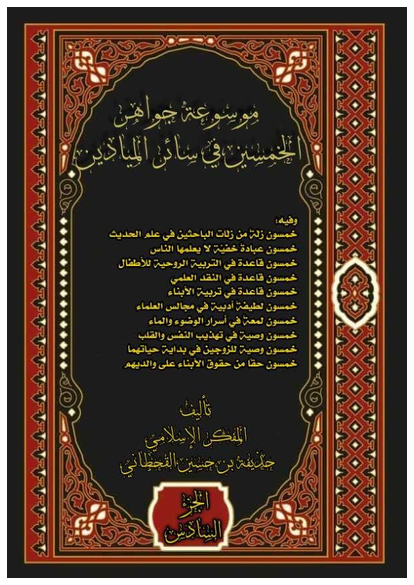 موسوعة جواهر
الخمسين في سائر الميادين
وفيه:
خمسون زلة من زلات الباحثين في علم الحديث
خمسون عبادة خفية لا يعلمها الناس
خمسون قاعدة في التربية الروحية للأطفال
خمسون قاعدة في النقد العلمي
خمسون قاعدة في تربية الأبناء
خمسون لطيفة أدبية في مجالس العلماء
خمسون لمعة في أسرار الوضوء والماء
خمسون وصية في تهذيب النفس والقلب
خمسون وصية للزوجين في بداية حياتهما
خمسون حقا من حقوق الأبناء على والديهم
تأليف
المفكر الإسلامي
حذيفة بن حسين القحطاني
الجزء
السادس